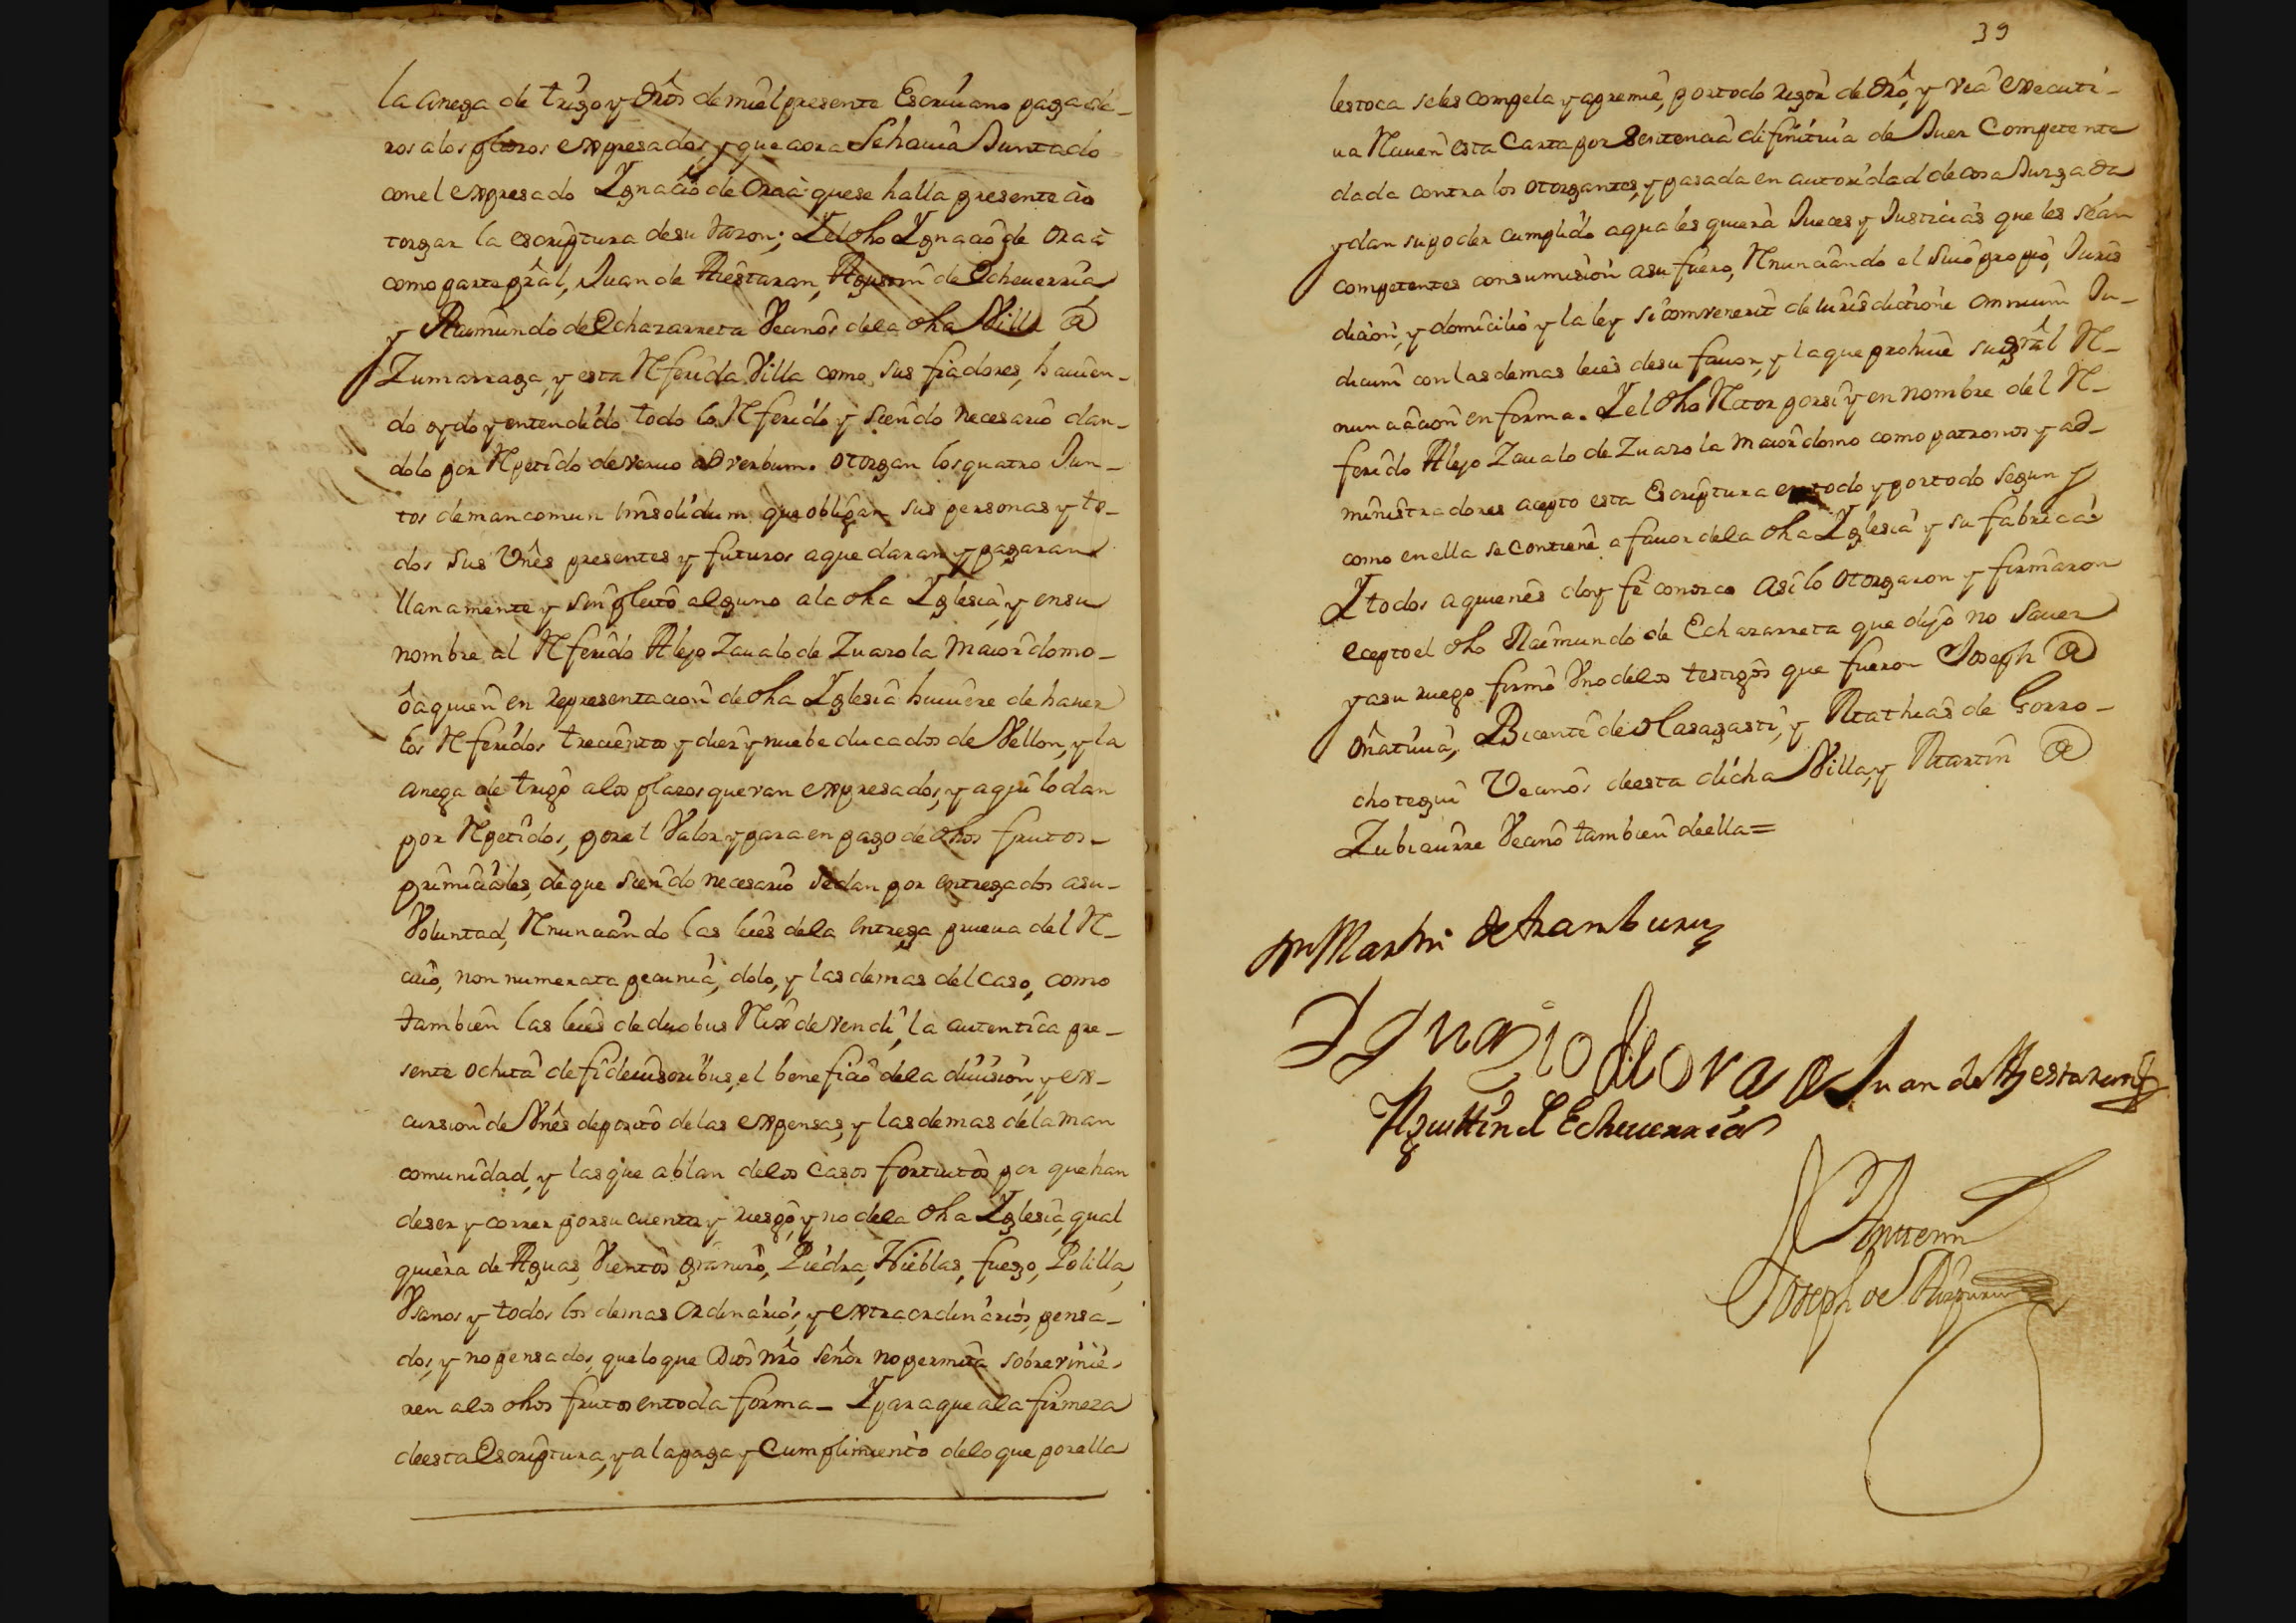 la anega de trigo y dros de mi el presente Escriuano pagade-
ros a los plazos expresados, y que aora se hauia Juntado
con el expresado Ygnacio de Oraa que se halla presente a o
torgar la escriptura de su razon; Y el dho Ygnacio de Oraa
como parte prâl, Juan de Aiestaran, Agustin de Echeuerria,
y Raimundo de Echazarreta Vecinos de la dha Villa de
Zumarraga, y esta Referida Villa como sus fiadores, hauien-
do oydo y entendido todo lo Referido y siendo necesario dan-
dolo por Repetido de veruo ad verbum. otorgan los quatro Jun-
tos de mancomun Insolidum que obligan sus personas y to-
dos sus Vnês presentes y futuros a que daran y pagaran
llanamente y sin pleito alguno a la dha Yglesia, y en su
nombre al Referido Alejo Zaualo de Zuazola Maiordomo-
ô aquien en representacion de dha Yglesia huuiere de hauer
los Referidos trecientos y diez y nuebe ducados de Vellon, y la
anega de trigo a los plazos que van expresados, y aqui lo dan
por Repetidos, por el Valor y para en pago de dhos frutos-
primiciales, de que siendo necesario se dan por entregados a su-
Voluntad, Renunciando las leies de la entrega prueua del Re-
ciuo, non numerata pecunia, dolo, y las demas del caso, como
tambien las leies de duobus Rex de vendi, la autentica pre-
sente ochita de fideiusoribus, el beneficio de la diuision, y ex-
cursion de Vnês deposito de las expensas, y las demas de la man
comunidad, y las que ablan de los casos fortuitos por que han
de ser y correr por su cuenta y riesgo, y no de la dha Yglesia, qual
quiera de Aguas, Vientos granizo, Piedra, Nieblas, fuego, Polilla,
Vsanos y todos los demas ordinarios, y extraordinarios, pensa-
dos, y no pensados, que lo que Dios nrô señor no permita sobrevinie-
ren a los dhos frutos en toda forma- Y para que a la firmeza
de esta Escriptura, y a la paga y Cumplimiento de lo que por ella
39
les toca se les compela y apremie, por todo rigor de dro, y via executi-
ua Reciuen esta Carta por Sentencia difinitiua de Juez Competente
dada contra los otorgantes, y pasada en autoridad de cosa Juzgada
y dan su poder cumplido a quales quiera Jueces y Justicias que les sean
competentes con sumision a su fuero, Renunciando el suio propio, Juris
dicion, y domicilio y la ley si convenerit de iurisdictione omnium Ju-
dicum con las demas leies de su fauor, y la que prohiue su grâl Re-
nunciacion en forma. Y el dho Retor por si y en nombre del Re-
ferido Alejo Zaualo de Zuazola Maiordomo como patronos y ad-
ministradores acepto esta Escriptura en todo y por todo segun y
como en ella se contiene a fauor de la dha Yglesia y su fabrica
Y todos a quienes doy fe conozco asi lo otorgaron y firmaron
ecepto el dho Raimundo de Echazarreta que dijo no sauer
y a su ruego firmo Vno de los testigos que fueron Joseph de
Oñatiuia, Bicente de Olasagasti, y Mathias de Gorro-
chotegui Vecinos de esta dicha Villa, y Martin de
Zubiaurre Vecino tambien de ella=
Dn Martin de Aranburu
Ygnazio de Oraa Juan de Ayestaran
Agusttin de Echeuerria
Antte mi
Joseph de